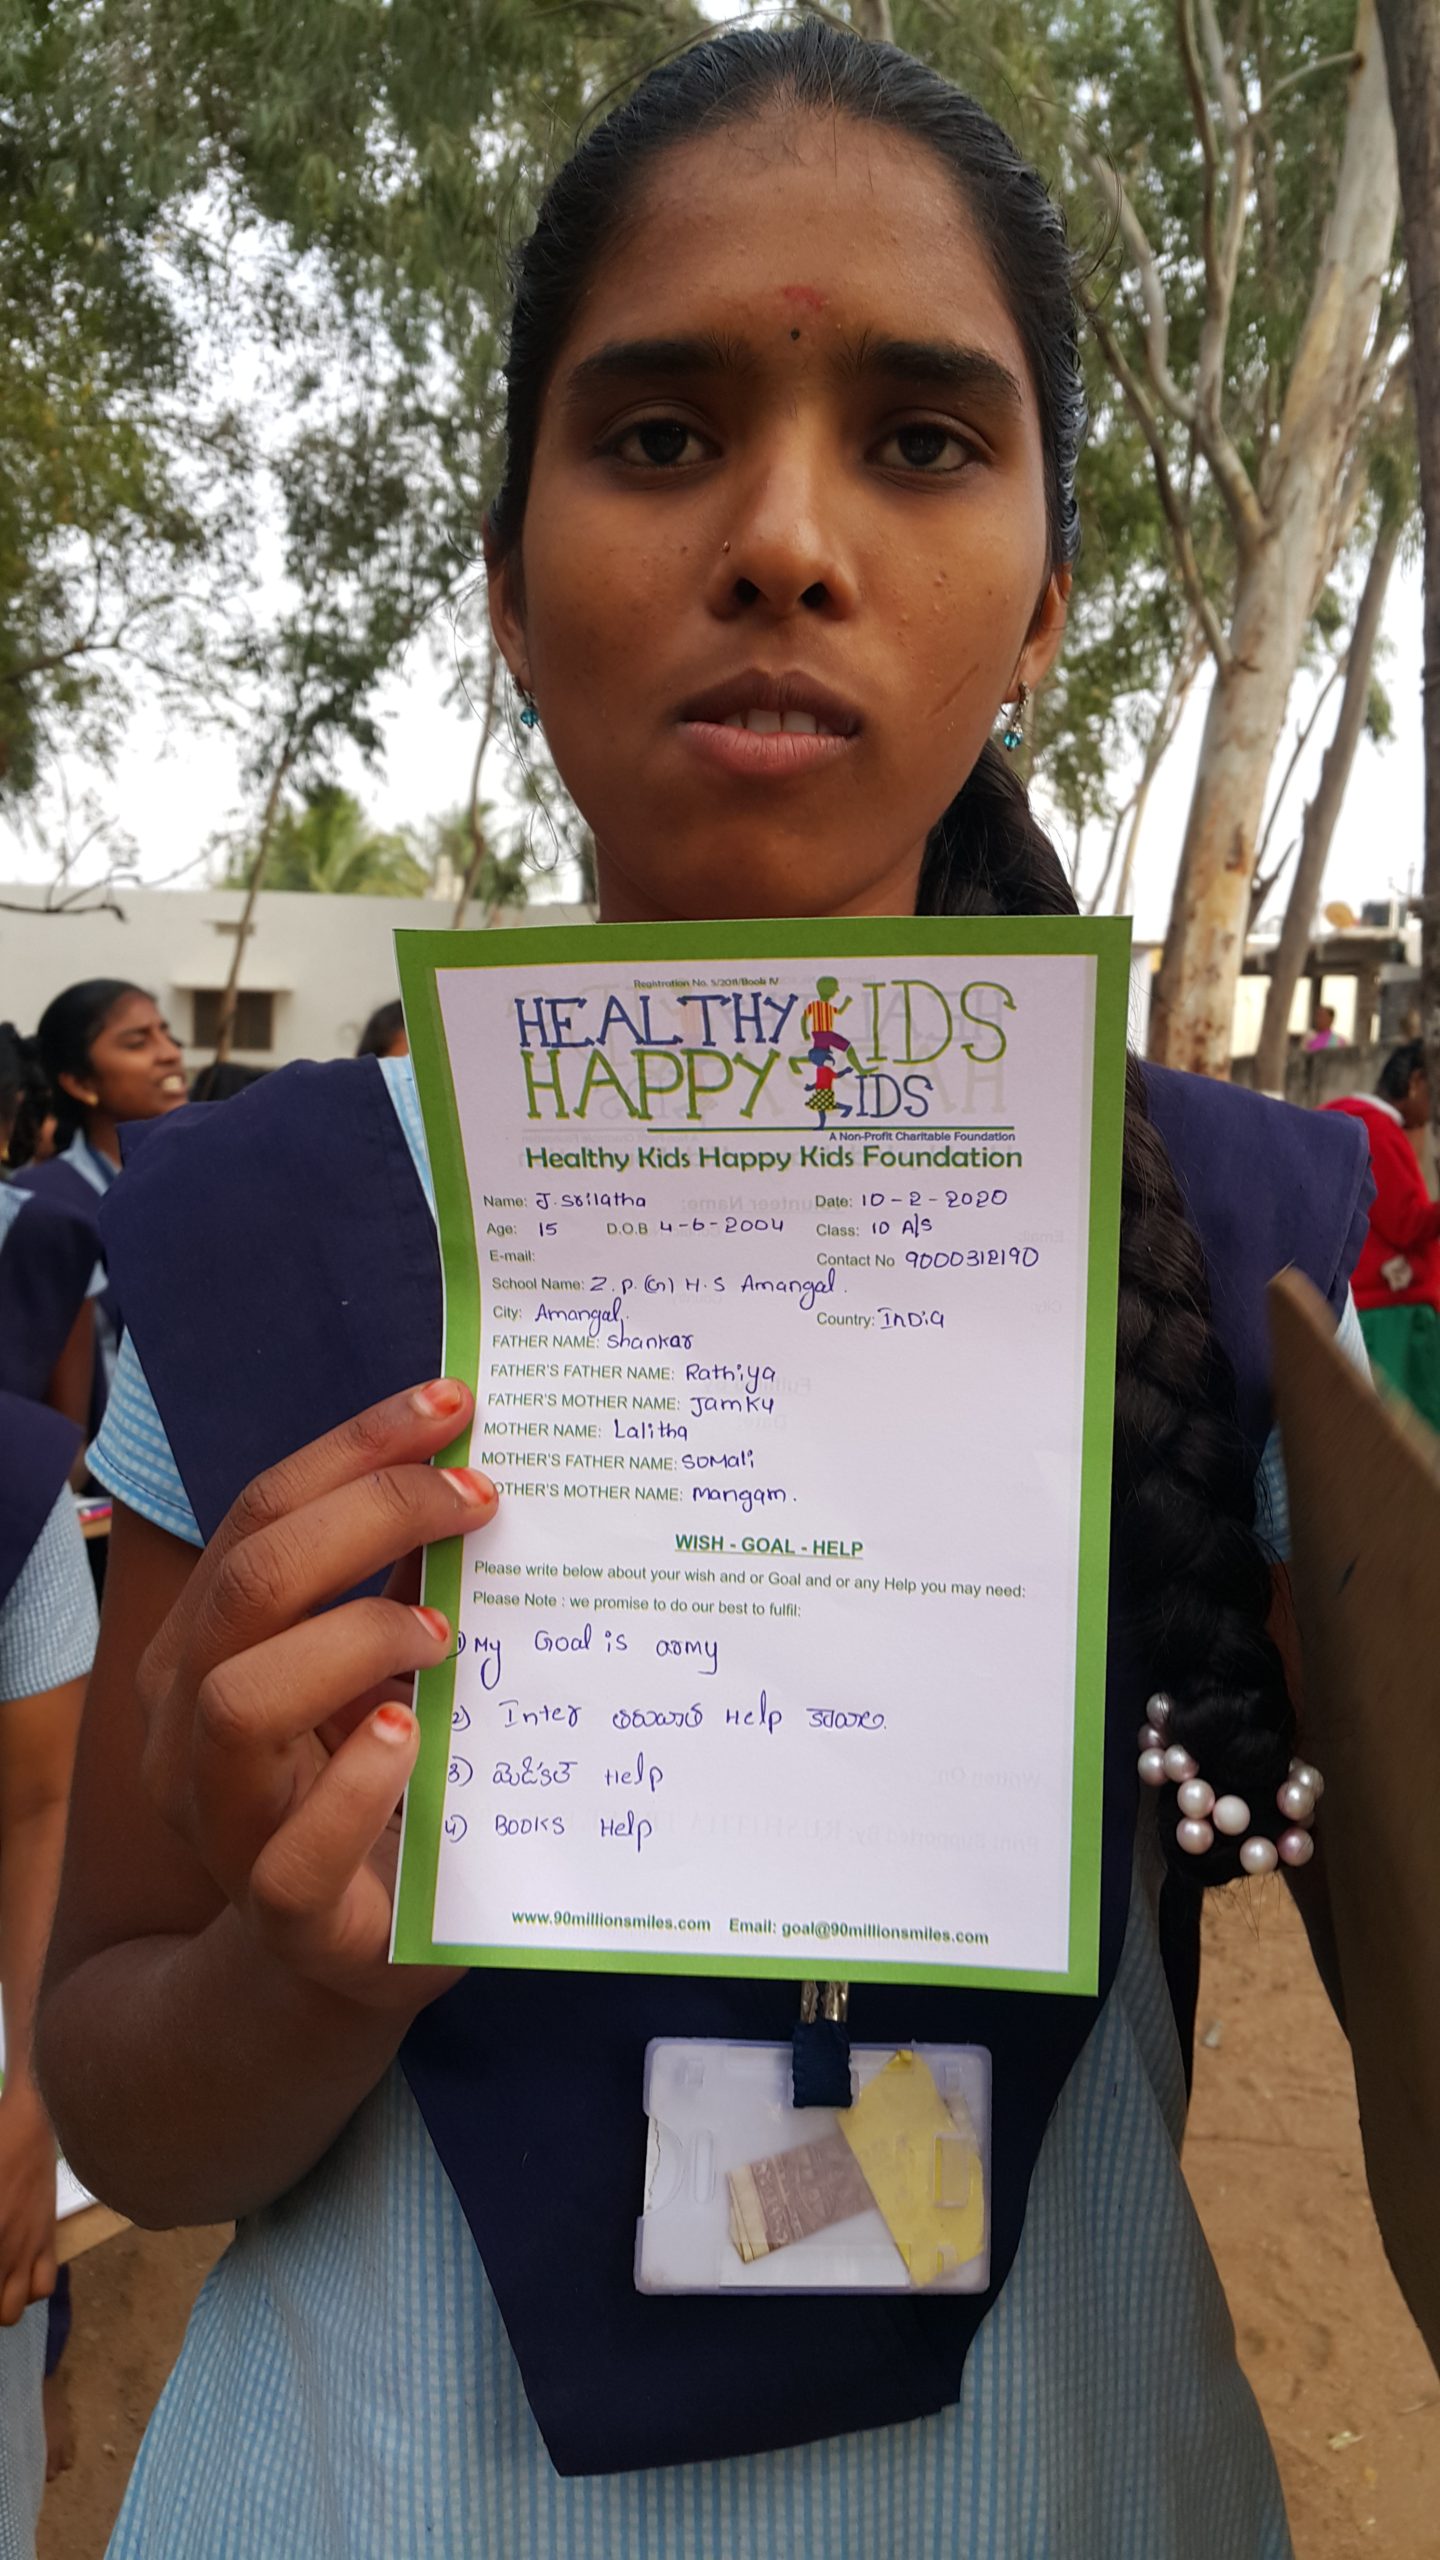 Registration No. 5/2011/Book IV
HEALTHY KIDS
HAPPY KIDS
A Non-Profit Charitable Foundation
Healthy Kids Happy Kids Foundation
Name: J. Srilatha Date: 10-2-2020
Age: 15 D.O.B 4-6-2004 Class: 10 A/S
E-mail: Contact No 9000312190
School Name: Z.P.(G) H.S Amangal.
City: Amangal. Country: India
FATHER NAME: Shankar
FATHER'S FATHER NAME: Rathiya
FATHER'S MOTHER NAME: Jamku
MOTHER NAME: Lalitha
MOTHER'S FATHER NAME: SOMali
OTHER'S MOTHER NAME: Mangam.
WISH - GOAL - HELP
Please write below about your wish and or Goal and or any Help you may need:
Please Note : we promise to do our best to fulfil:
1) My Goal is army
2) Inter తరువాత Help కావాలి.
3) మెడికల్ Help
4) BOOKS Help
www.90millionsmiles.com Email: goal@90millionsmiles.com